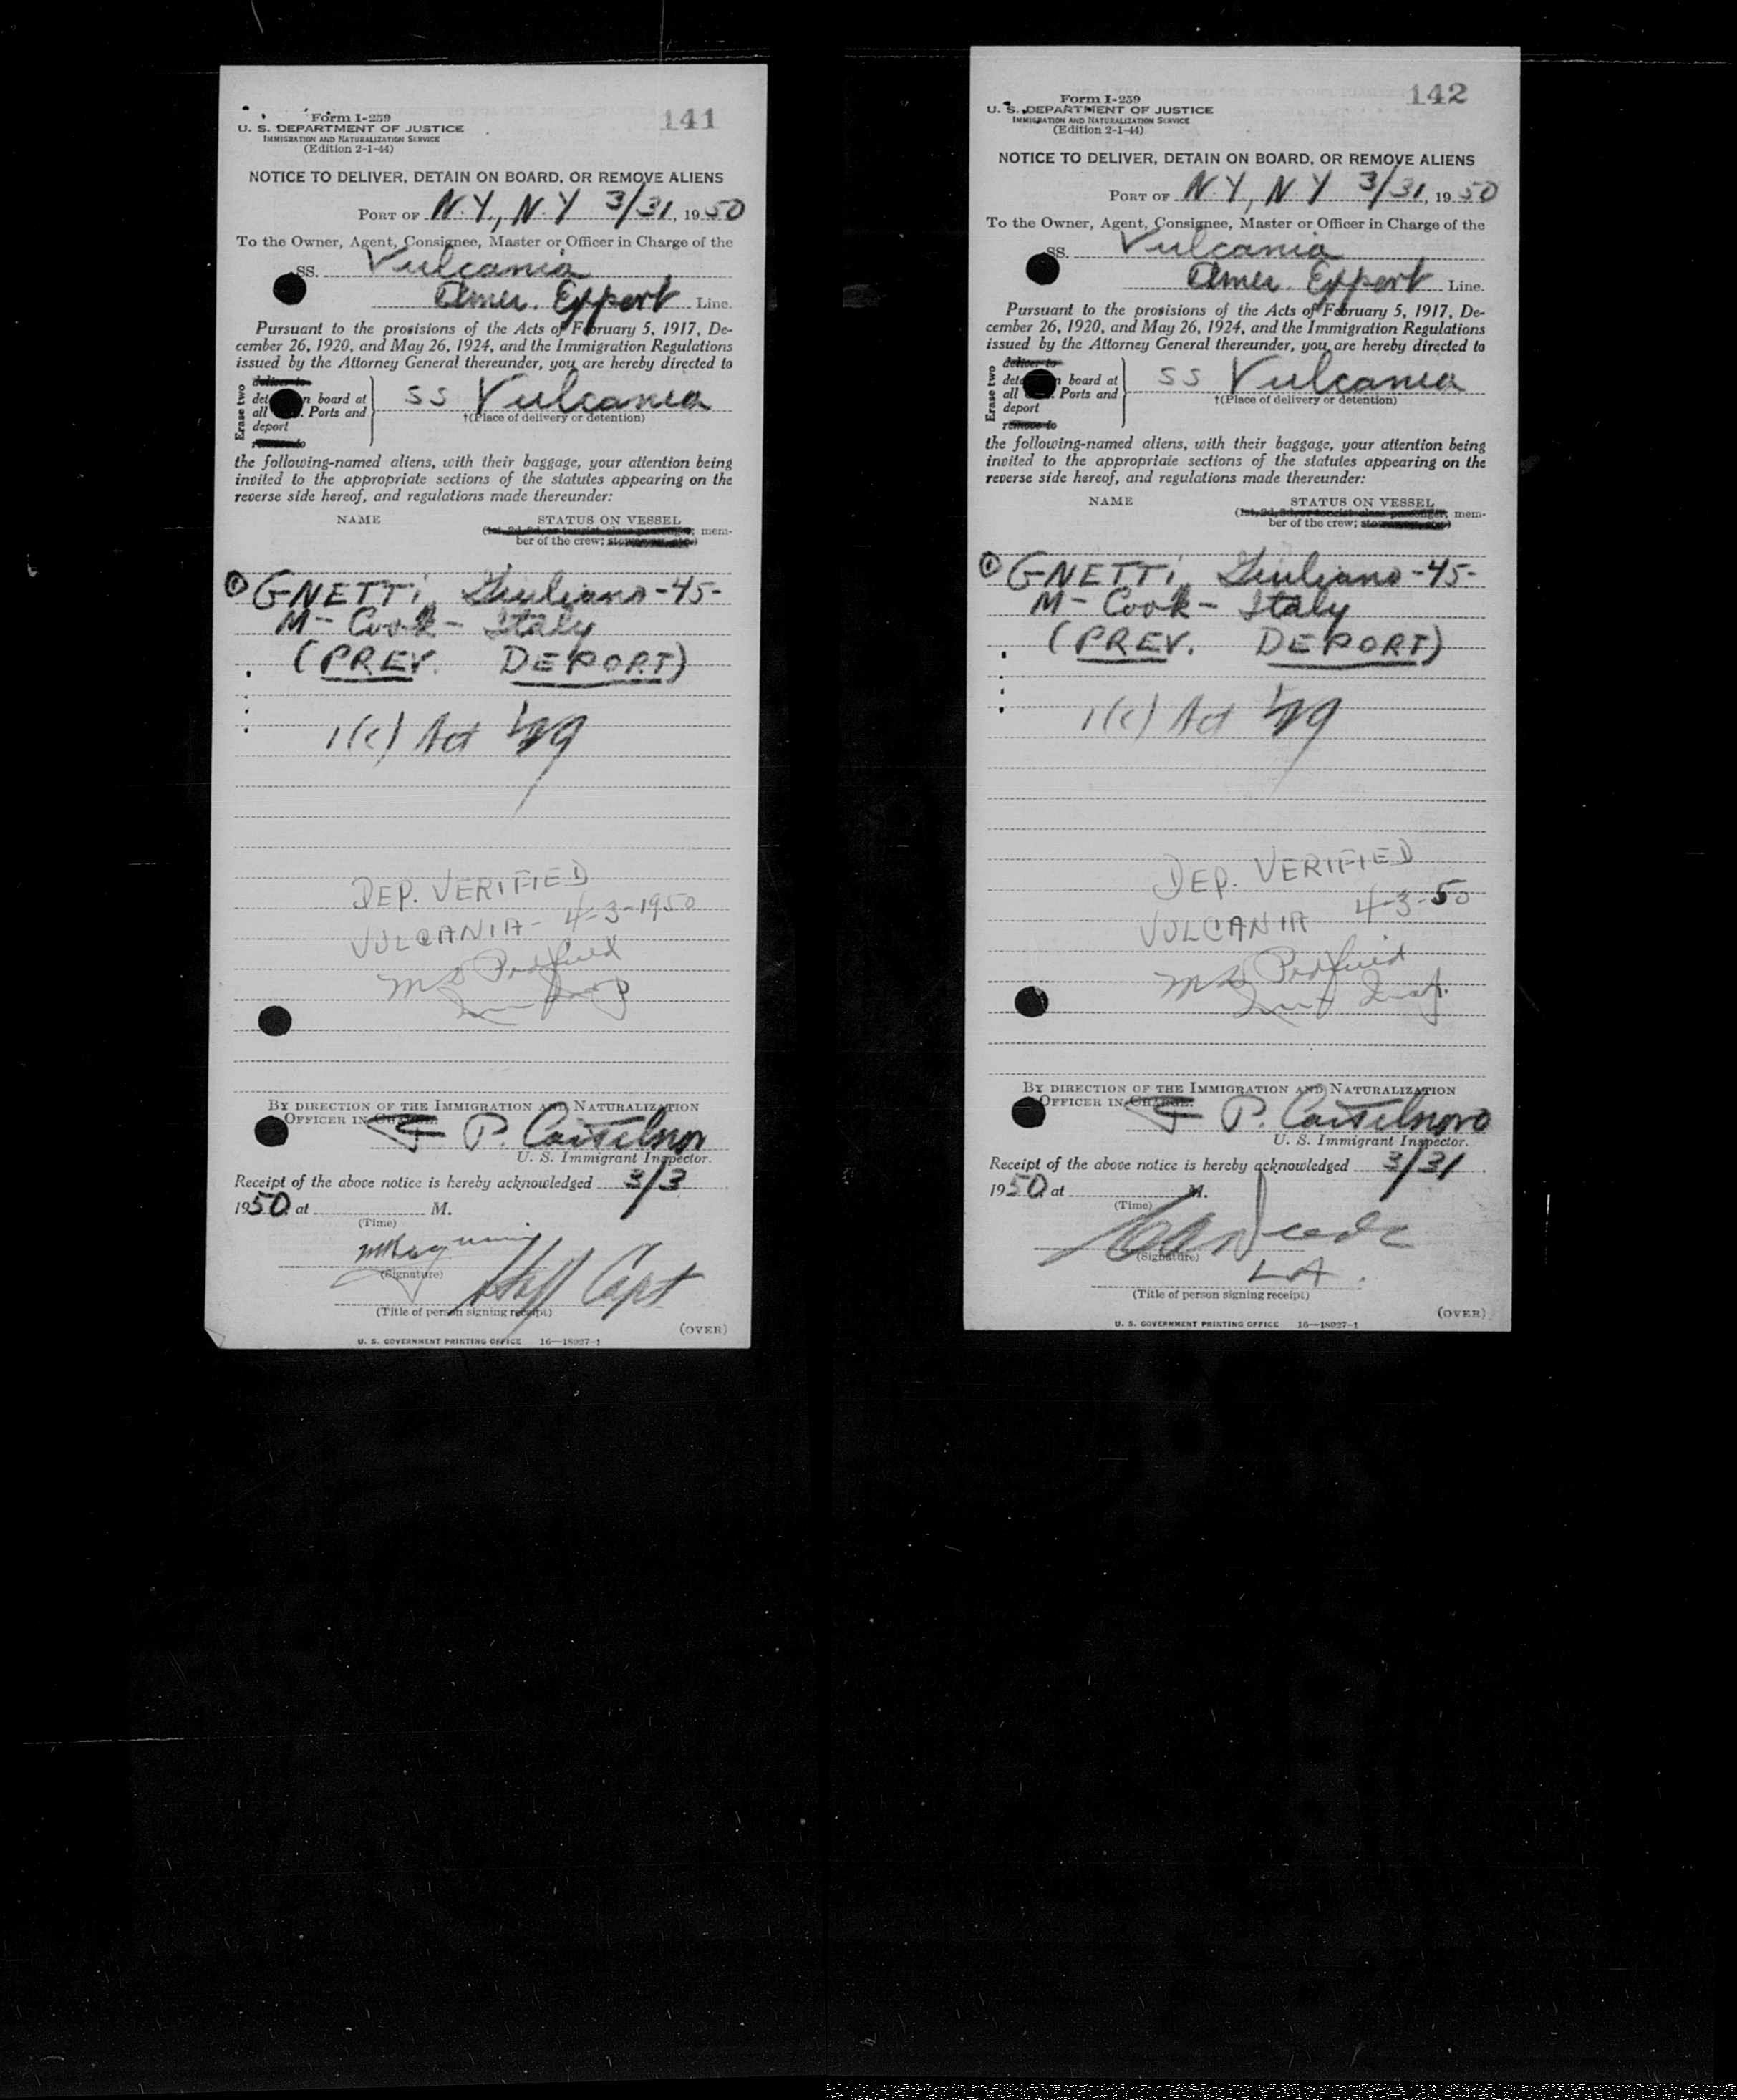 141
Form I-259
U. S. DEPARTMENT OF JUSTICE
IMMIGRATION AND NATURALIZATION SERVICE
(Edition 2-1-44)
NOTICE TO DELIVER, DETAIN ON BOARD, OR REMOVE ALIENS
PORT OF N.Y., N.Y 3/31, 1950
To the Owner, Agent, Consignee, Master or Officer in Charge of the
SS. Vulcania
Amer. Export Line.
Pursuant to the provisions of the Acts of February 5, 1917, De-
cember 26, 1920, and May 26, 1924, and the Immigration Regulations
issued by the Attorney General thereunder, you are hereby directed to
Erase two
deliver to
det n board at
all . Ports and
deport
remove to
SS Vulcania
†(Place of delivery or detention)
the following-named aliens, with their baggage, your attention being
invited to the appropriate sections of the statutes appearing on the
reverse side hereof, and regulations made thereunder:
NAME STATUS ON VESSEL
(1st, 2d, 3d, or tourist class passenger; mem-
ber of the crew; stowaway, etc.)
① GNETTi, Giuliano-45-
M- Cook- Italy
(PREV. DEPORT)
1(c) Act
DEP. VERIFIED
VULCANIA- 4-3-1950
BY DIRECTION OF THE IMMIGRATION AND NATURALIZATION
OFFICER IN CHARGE:
U. S. Immigrant Inspector.
Receipt of the above notice is hereby acknowledged 3/3
1950 at M.
(Time)
(Signature)
Staff Capt
(Title of person signing receipt)
(OVER)
U. S. GOVERNMENT PRINTING OFFICE 16—18027-1
142
Form I-259
U. S. DEPARTMENT OF JUSTICE
IMMIGRATION AND NATURALIZATION SERVICE
(Edition 2-1-44)
NOTICE TO DELIVER, DETAIN ON BOARD, OR REMOVE ALIENS
PORT OF N.Y., N Y 3/31, 1950
To the Owner, Agent, Consignee, Master or Officer in Charge of the
SS. Vulcania
Amer. Export Line.
Pursuant to the provisions of the Acts of February 5, 1917, De-
cember 26, 1920, and May 26, 1924, and the Immigration Regulations
issued by the Attorney General thereunder, you are hereby directed to
Erase two
deliver to
deta n board at
all . Ports and
deport
remove to
SS Vulcania
†(Place of delivery or detention)
the following-named aliens, with their baggage, your attention being
invited to the appropriate sections of the statutes appearing on the
reverse side hereof, and regulations made thereunder:
NAME STATUS ON VESSEL
(1st, 2d, 3d, or tourist class passenger; mem-
ber of the crew; stowaway, etc.)
① GNETTi, Giuliano-45-
M- Cook- Italy
(PREV. DEPORT)
1(c) Act
DEP. VERIFIED
VULCANIA 4-3-50
BY DIRECTION OF THE IMMIGRATION AND NATURALIZATION
OFFICER IN CHARGE:
U. S. Immigrant Inspector.
Receipt of the above notice is hereby acknowledged 3/31
1950 at M.
(Time)
(Signature)
(Title of person signing receipt)
(OVER)
U. S. GOVERNMENT PRINTING OFFICE 16—18027-1